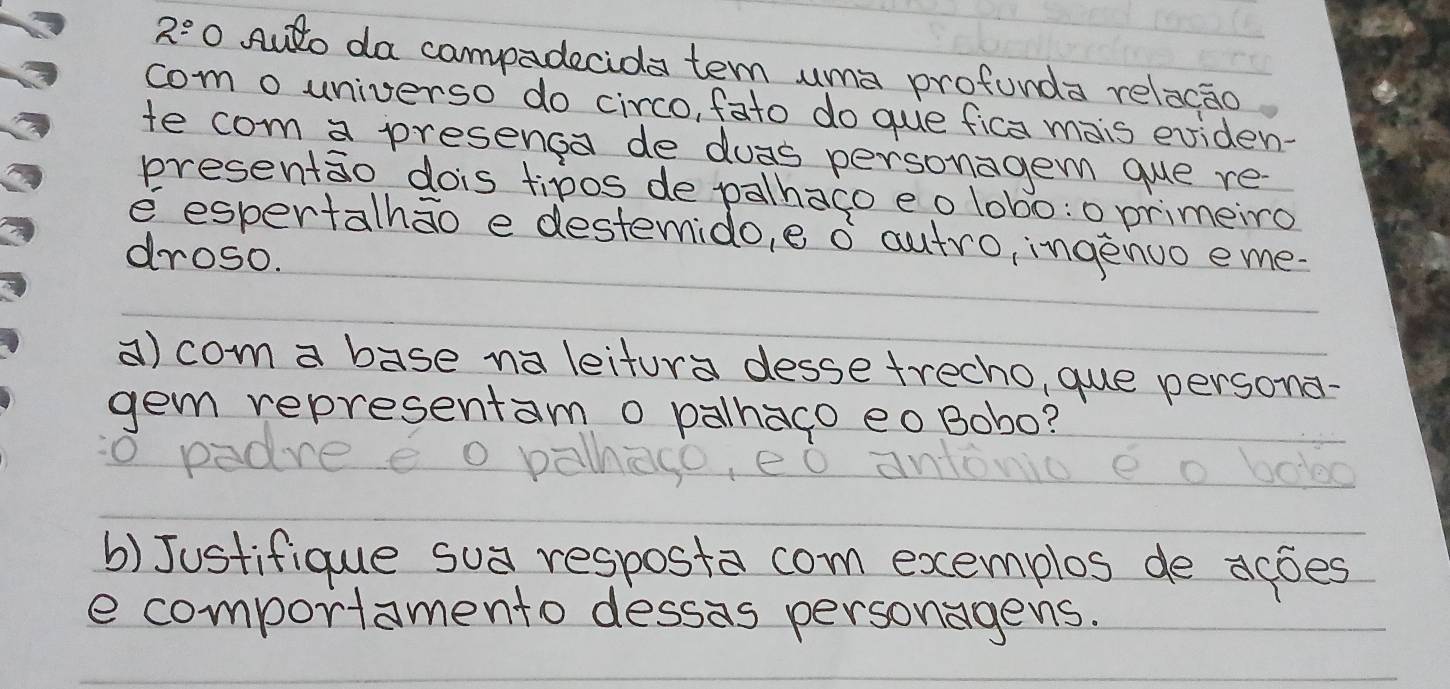 2º O Auto da campadecida tem uma profunda relação
com o universo do circo, fato do que fica mais eviden-
te com a presença de duas personagem que re-
presentão dois tipos de palhaço e o lobo: o primeiro
é espertalhão e destemido, e o autro, ingênuo e me-
droso.
a) com a base na leitura desse trecho, que persona-
gem representam o palhaço e o Bobo?
:o padre é o palhaço, e o antônio é o bobo
b) Justifique sua resposta com exemplos de ações
e comportamento dessas personagens.